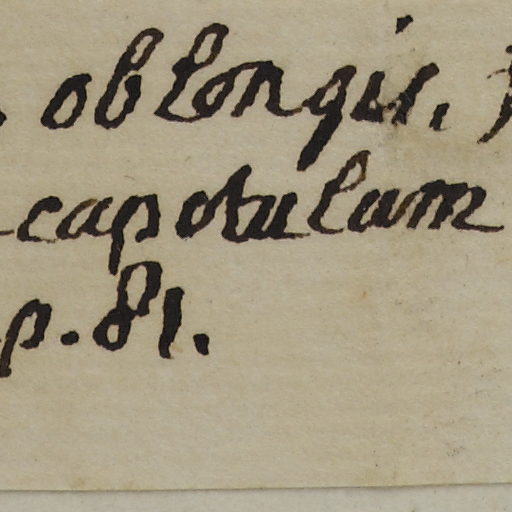 oblongis.
capotulam
p. 81.